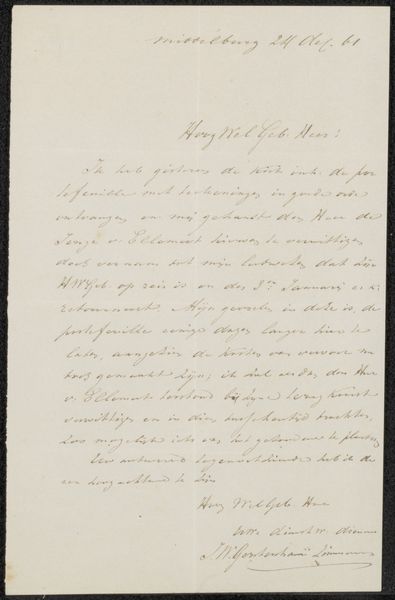 Middelburg 24 Dec. 61
Hoog Wel Geb. Heer!
Ik heb gisteren de kist inh. de por
tefeuille met teekeningen in goede orde
ontvangen en mij gehaast den Heer de
Jonge v. Ellemeet hiervan te verwittigen
doch vernam tot mijn leedwezen dat
HWGeb op reis is en den Januarij e.k.
retourneert. Mijn gevoelen in deze is, de
portefeuille eenige dagen langer hier te
laten, aangezien de kosten van vervoer nu
toch gemaakt zijn; ik zal als dan den Heer
v. Ellemeet terstond bij zijne terug komst
verwittigen en in dien tusschentijd trachten
zoo mogelijk iets van het gezondene te plaatsen
Uw antwoord tegemoetziende heb ik de
eer hoogachtend te zijn
Hoog Wel Geb. Heer
UWE dienstw. dienaar
J.W. Gerstenhauer Zimmerman